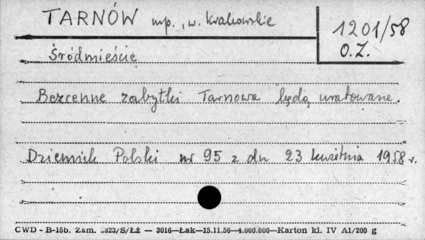 TARNÓW mp., w. krakowskie
1201/58
O.Z.
Śródmieście
Bezcenne zabytki Tarnowa będą uratowane.
Dziennik Polski nr 95 z dn 23 kwietnia 1958 r.
CWD - B-15b. Zam. 5823/S/ŁŻ — 3016—Łak—15.11.56—4.000.000—Karton kl. IV A1/200 g